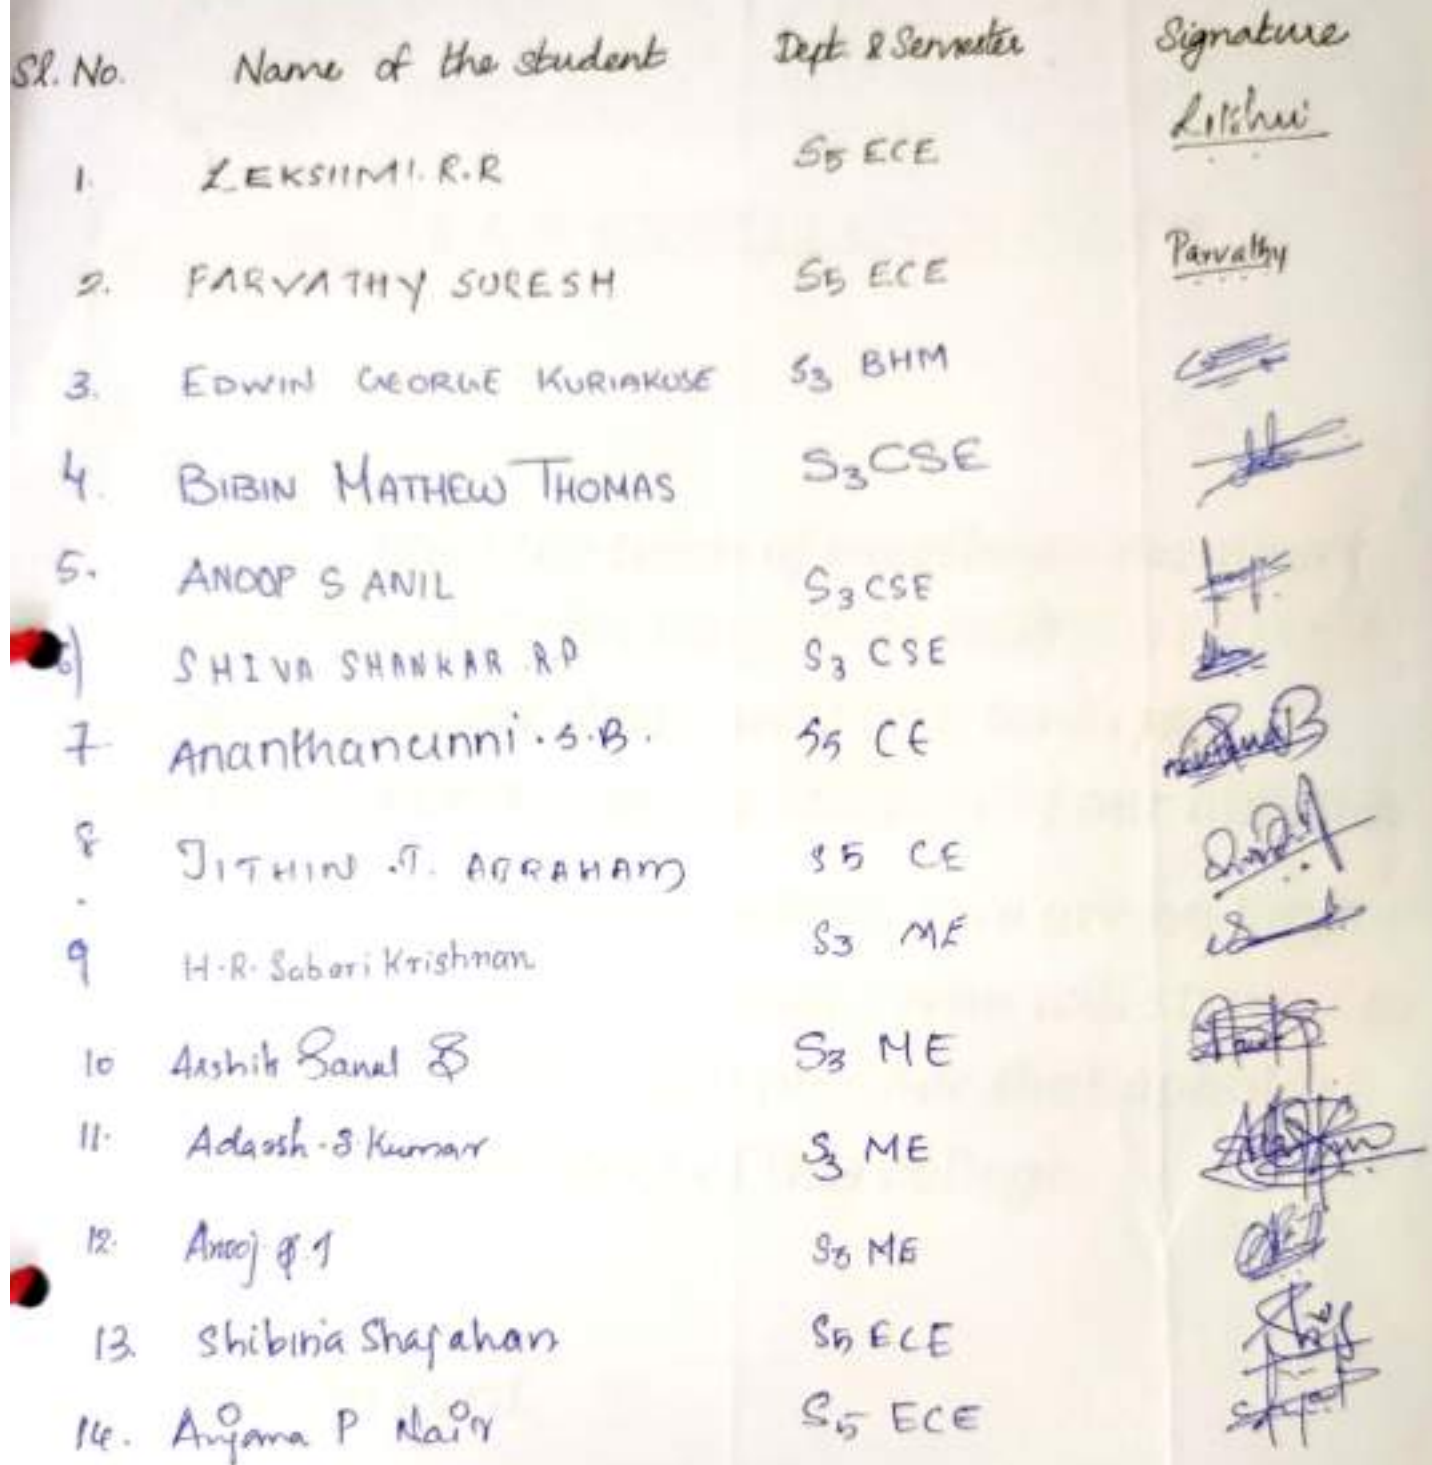 Sl. No. Name of the student Dept & Semester Signature
1. LEKSHMI. R.R S5 ECE
2. PARVATHY SURESH S5 ECE Parvathy
3. EDWIN GEORGE KURIAKOSE S3 BHM
4. BIBIN MATHEW THOMAS S3 CSE
5. ANOOP S ANIL S3 CSE
6) SHIVA SHANKAR S3 CSE
7 Ananthanunni . S.B. S5 CE
8 JITHIN .T. ABRAHAM S5 CE
9 H.R. Sabari Krishnan S3 ME
10 Ashik Sanal S3 ME
11. Adarsh . S Kumar S3 ME
12. Anooj ME
13. Shibina Shajahan S5 ECE
14. Anjana P Nair S5 ECE